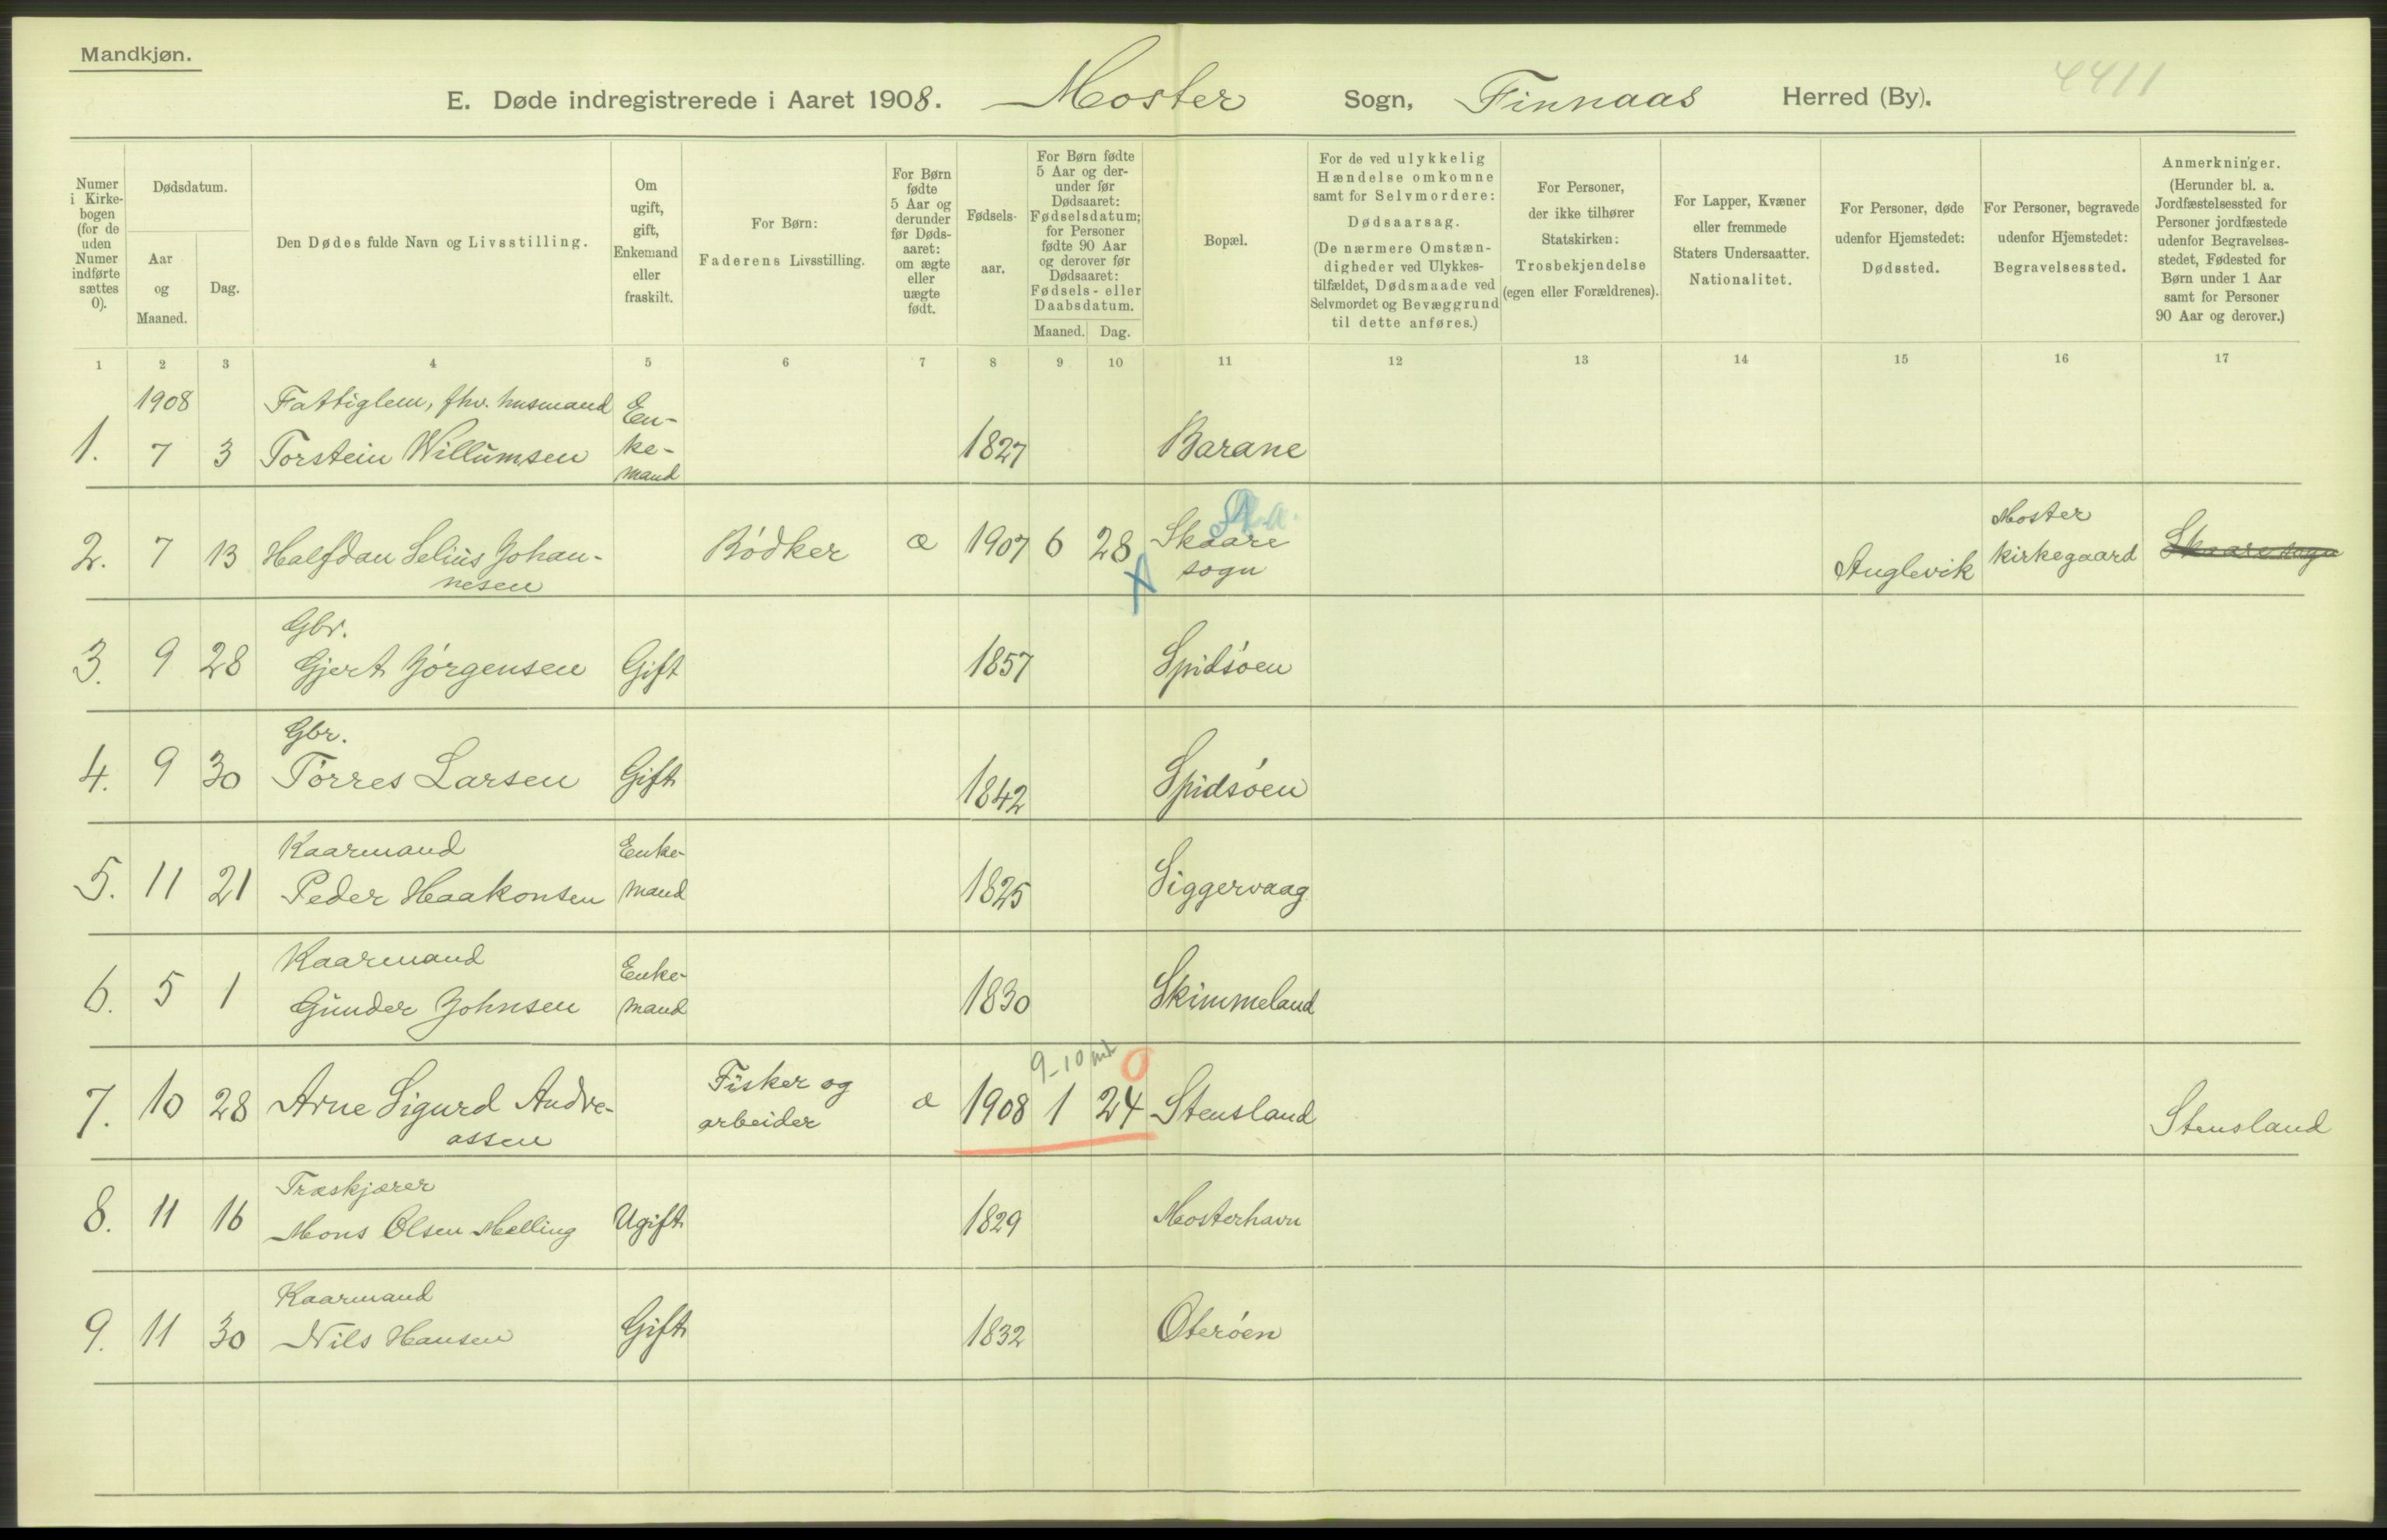 Mandkjøn.
4411
E. Døde indregistrerede i Aaret 1908. Moster Sogn, Finnaas Herred (By).
Numer i Kirkebogen (for de uden Numer indførte sættes 0).
Dødsdatum.
Aar og Maaned.
Dag.
Den Dødes fulde Navn og Livsstilling.
Om ugift, gift, Enkemand eller fraskilt.
For Børn: Faderens Livsstilling.
For Børn fødte 5 Aar og derunder før Dødsaaret: om ægte eller uægte født.
Fødselsaar.
For Børn fødte 5 Aar og derunder før Dødsaaret: Fødselsdatum; for Personer fødte 90 Aar og derover før Dødsaaret: Fødsels- eller Daabsdatum.
Maaned. Dag.
Bopæl.
For de ved ulykkelig Hændelse omkomne samt for Selvmordere: Dødsaarsag. (De nærmere Omstændigheder ved Ulykkestilfældet, Dødsmaade ved Selvmordet og Bevæggrund til dette anføres.)
For Personer, der ikke tilhører Statskirken: Trosbekjendelse (egen eller Forældrenes).
For Lapper, Kvæner eller fremmede Staters Undersaatter. Nationalitet.
For Personer, døde udenfor Hjemstedet: Dødssted.
For Personer, begravede udenfor Hjemstedet: Begravelsessted.
Anmerkninger. (Herunder bl. a. Jordfæstelsessted for Personer jordfæstede udenfor Begravelsesstedet, Fødested for Børn under 1 Aar samt for Personer 90 Aar og derover.)
1 2 3 4 5 6 7 8 9 10 11 12 13 14 15 16 17
1908 Fattiglem, fhv. husmand
1. 7 3 Torstein Willumsen Enkemand 1827 Barane
2. 7 13 Halfdan Selius Johannesen Bødker æ 1907 6 28 Skaare sogn Auglevik Moster kirkegaard Skaare sogn
Gbr.
3. 9 28 Gjert Jørgensen Gift 1857 Spidsøen
Gbr.
4. 9 30 Tørres Larsen Gift 1842 Spidsøen
Kaarmand
5. 11 21 Peder Haakonsen Enkemand 1825 Siggervaag
Kaarmand
6. 5 1 Gunder Johnsen Enkemand 1830 Skimmeland
9-10 mdr 0
7. 10 28 Arne Sigurd Andreassen Fisker og arbeider æ 1908 1 24 Stensland Stensland
Træskjærer
8. 11 16 Mons Olsen Melling Ugift 1829 Mosterhavn
Kaarmand
9. 11 30 Nils Hansen Gift 1832 Oterøen